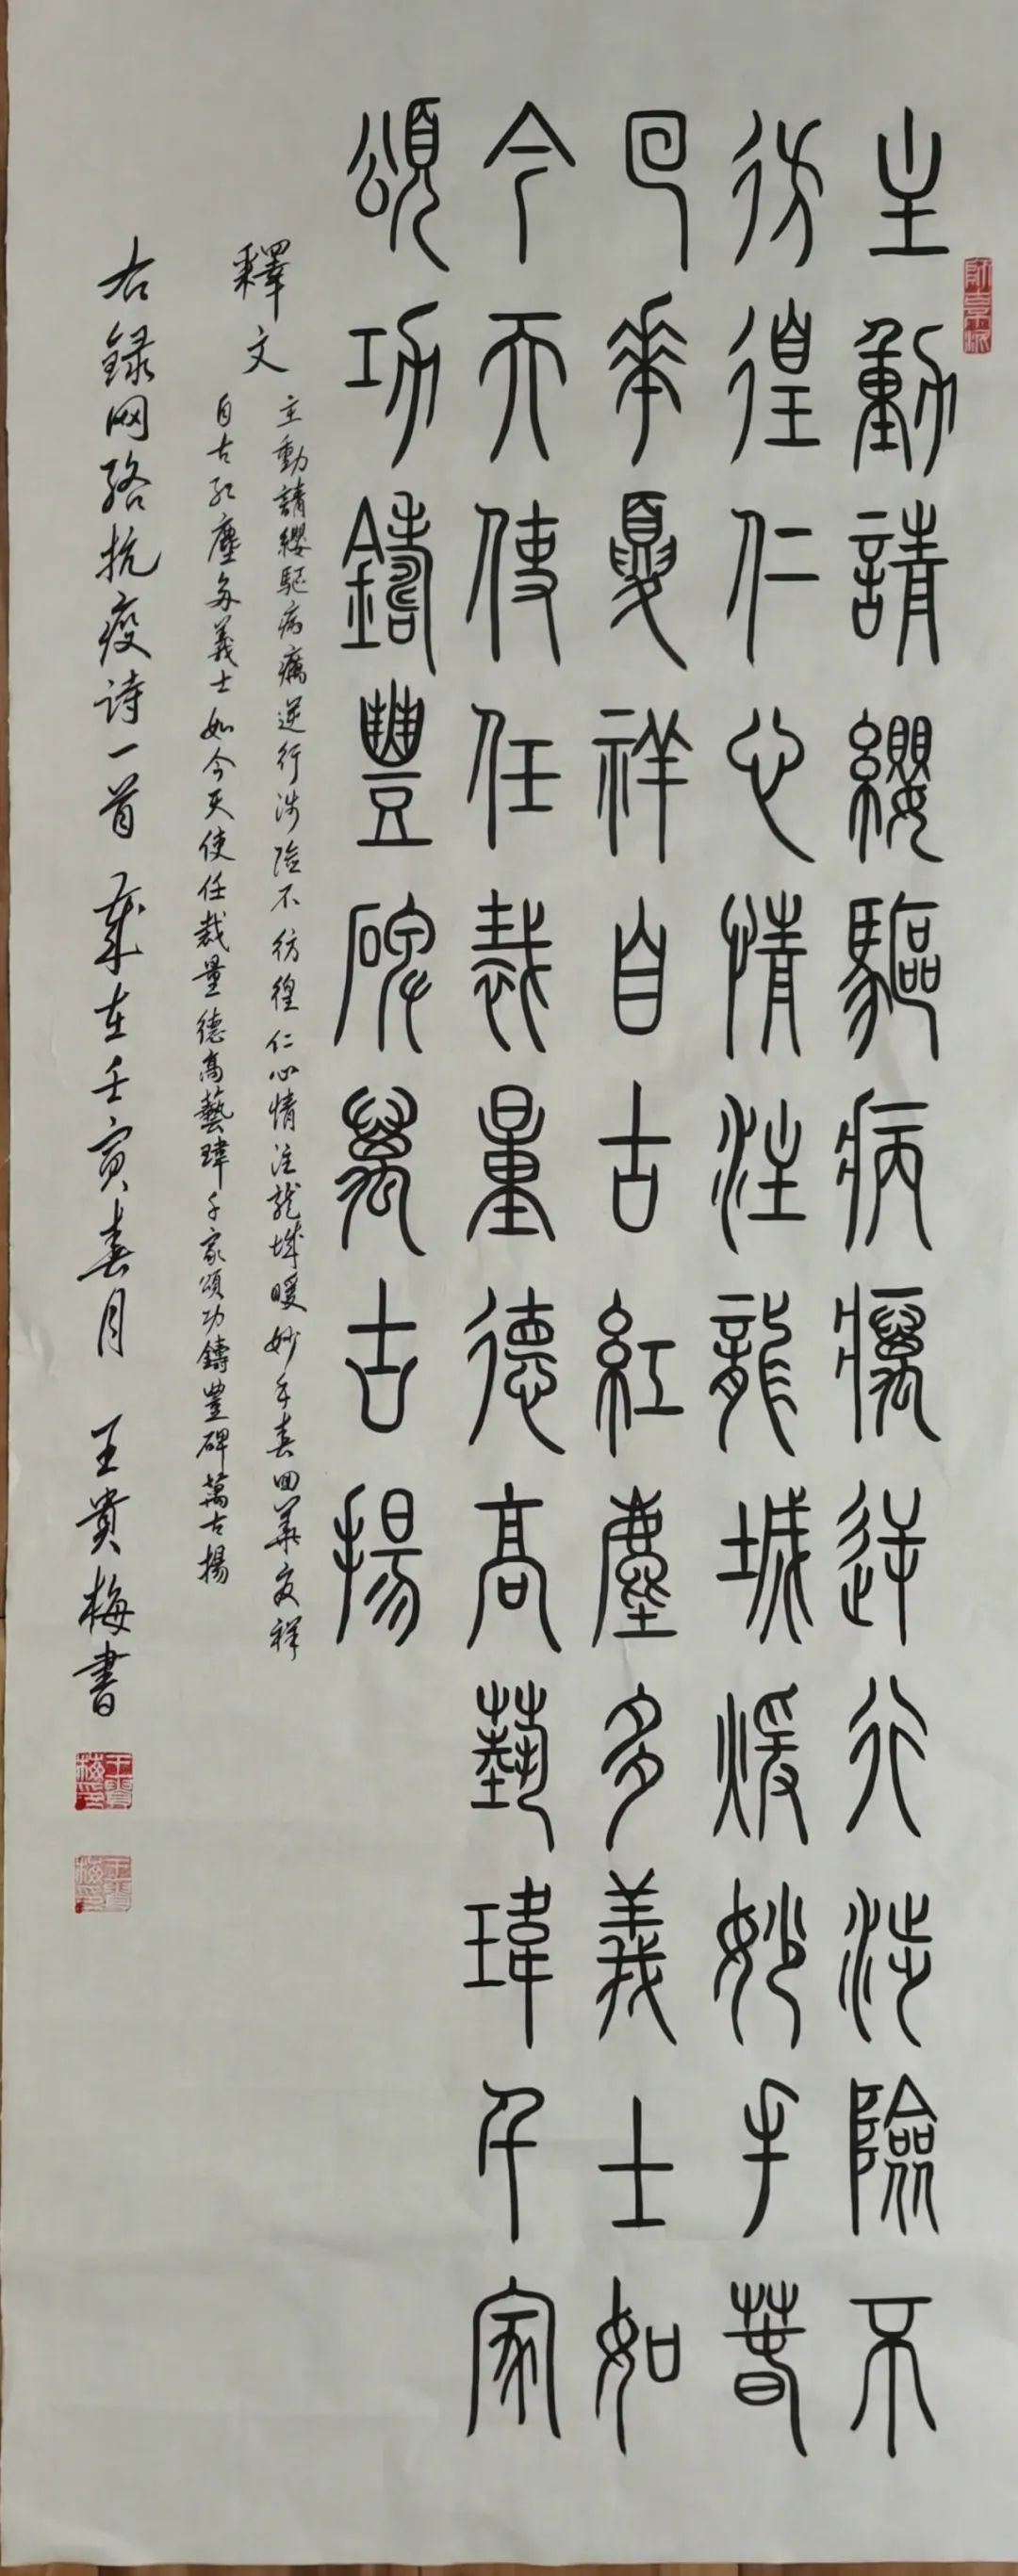 主動請纓驅病癘逆行涉險不
彷徨仁心情注龍城煖妙手春
回華夏祥自古紅塵多義士如
今天使任裁量德高藝瑋千家
頌功鑄豐碑萬古揚
釋文
主動請纓驅病癘逆行涉險不彷徨仁心情注龍城暖妙手春回華夏祥
自古紅塵多義士如今天使任裁量德高藝瑋千家頌功鑄豐碑萬古揚
右録网络抗疫诗一首 歲在壬寅春月 王貴梅書
王貴梅印
王貴梅印